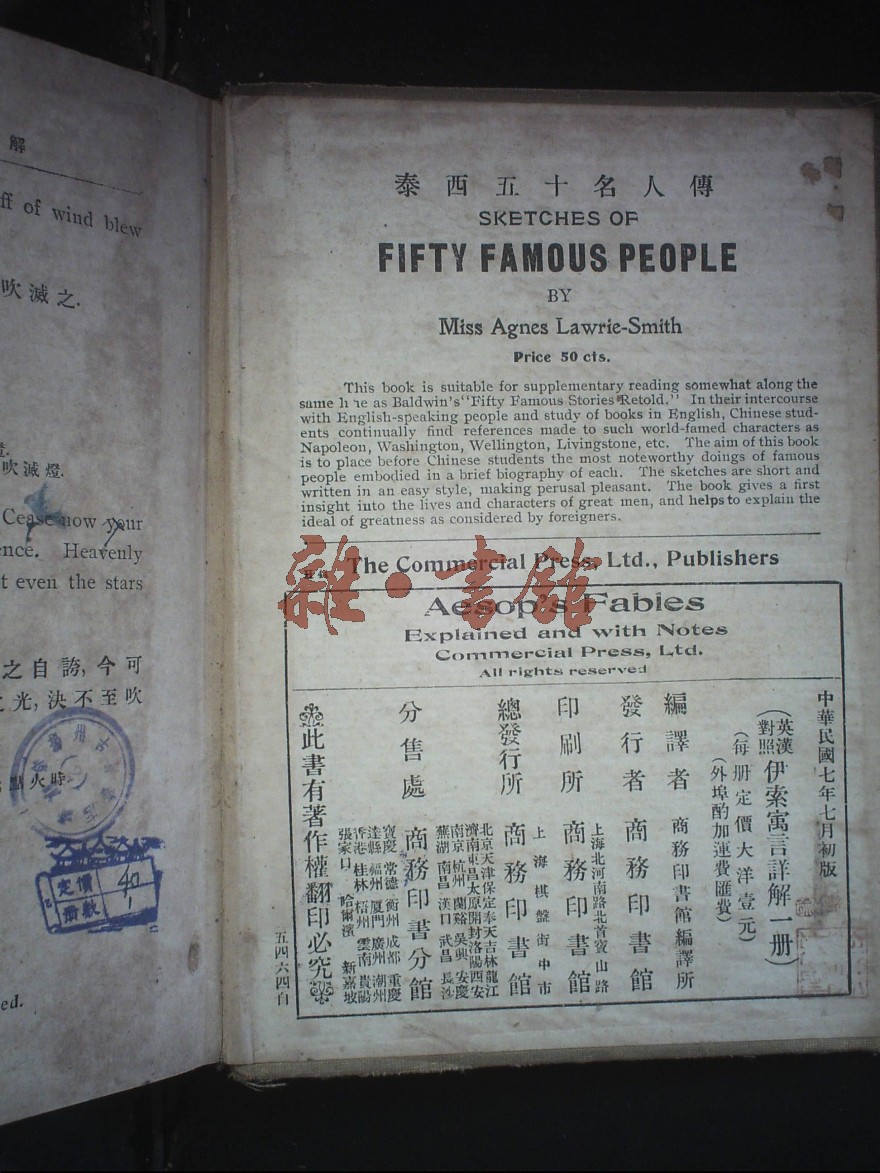 解
ff of wind blew
吹滅之.
吹滅燈.
Cease now your
ence. Heavenly
t even the stars
之自誇,今可
光,決不至吹
點火時.
定價 40
冊數 1
ed.
泰西五十名人傳
SKETCHES OF
FIFTY FAMOUS PEOPLE
BY
Miss Agnes Lawrie-Smith
Price 50 cts.
This book is suitable for supplementary reading somewhat along the
same line as Baldwin's "Fifty Famous Stories Retold." In their intercourse
with English-speaking people and study of books in English, Chinese stud-
ents continually find references made to such world-famed characters as
Napoleon, Washington, Wellington, Livingstone, etc. The aim of this book
is to place before Chinese students the most noteworthy doings of famous
people embodied in a brief biography of each. The sketches are short and
written in an easy style, making perusal pleasant. The book gives a first
insight into the lives and characters of great men, and helps to explain the
ideal of greatness as considered by foreigners.
The Commercial Press, Ltd., Publishers
雜·書館
Aesop's Fables
Explained and with Notes
Commercial Press, Ltd.
All rights reserved
中華民國七年七月初版
(英漢對照伊索寓言詳解一册)
(每册定價大洋壹元)
(外埠酌加運費匯費)
編譯者 商務印書館編譯所
發行者 商務印書館
上海北河南路北首寶山路
印刷所 商務印書館
上海棋盤街中市
總發行所 商務印書館
北京天津保定奉天吉林龍江
濟南東昌太原開封洛陽西安
南京杭州蘭谿吳興安慶
蕪湖南昌漢口武昌長沙
分售處 商務印書分館
寶慶常德衡州成都重慶
達縣福州廈門廣州潮州
香港桂林梧州雲南貴陽
張家口哈爾濱新嘉坡
此書有著作權翻印必究
五四六四自